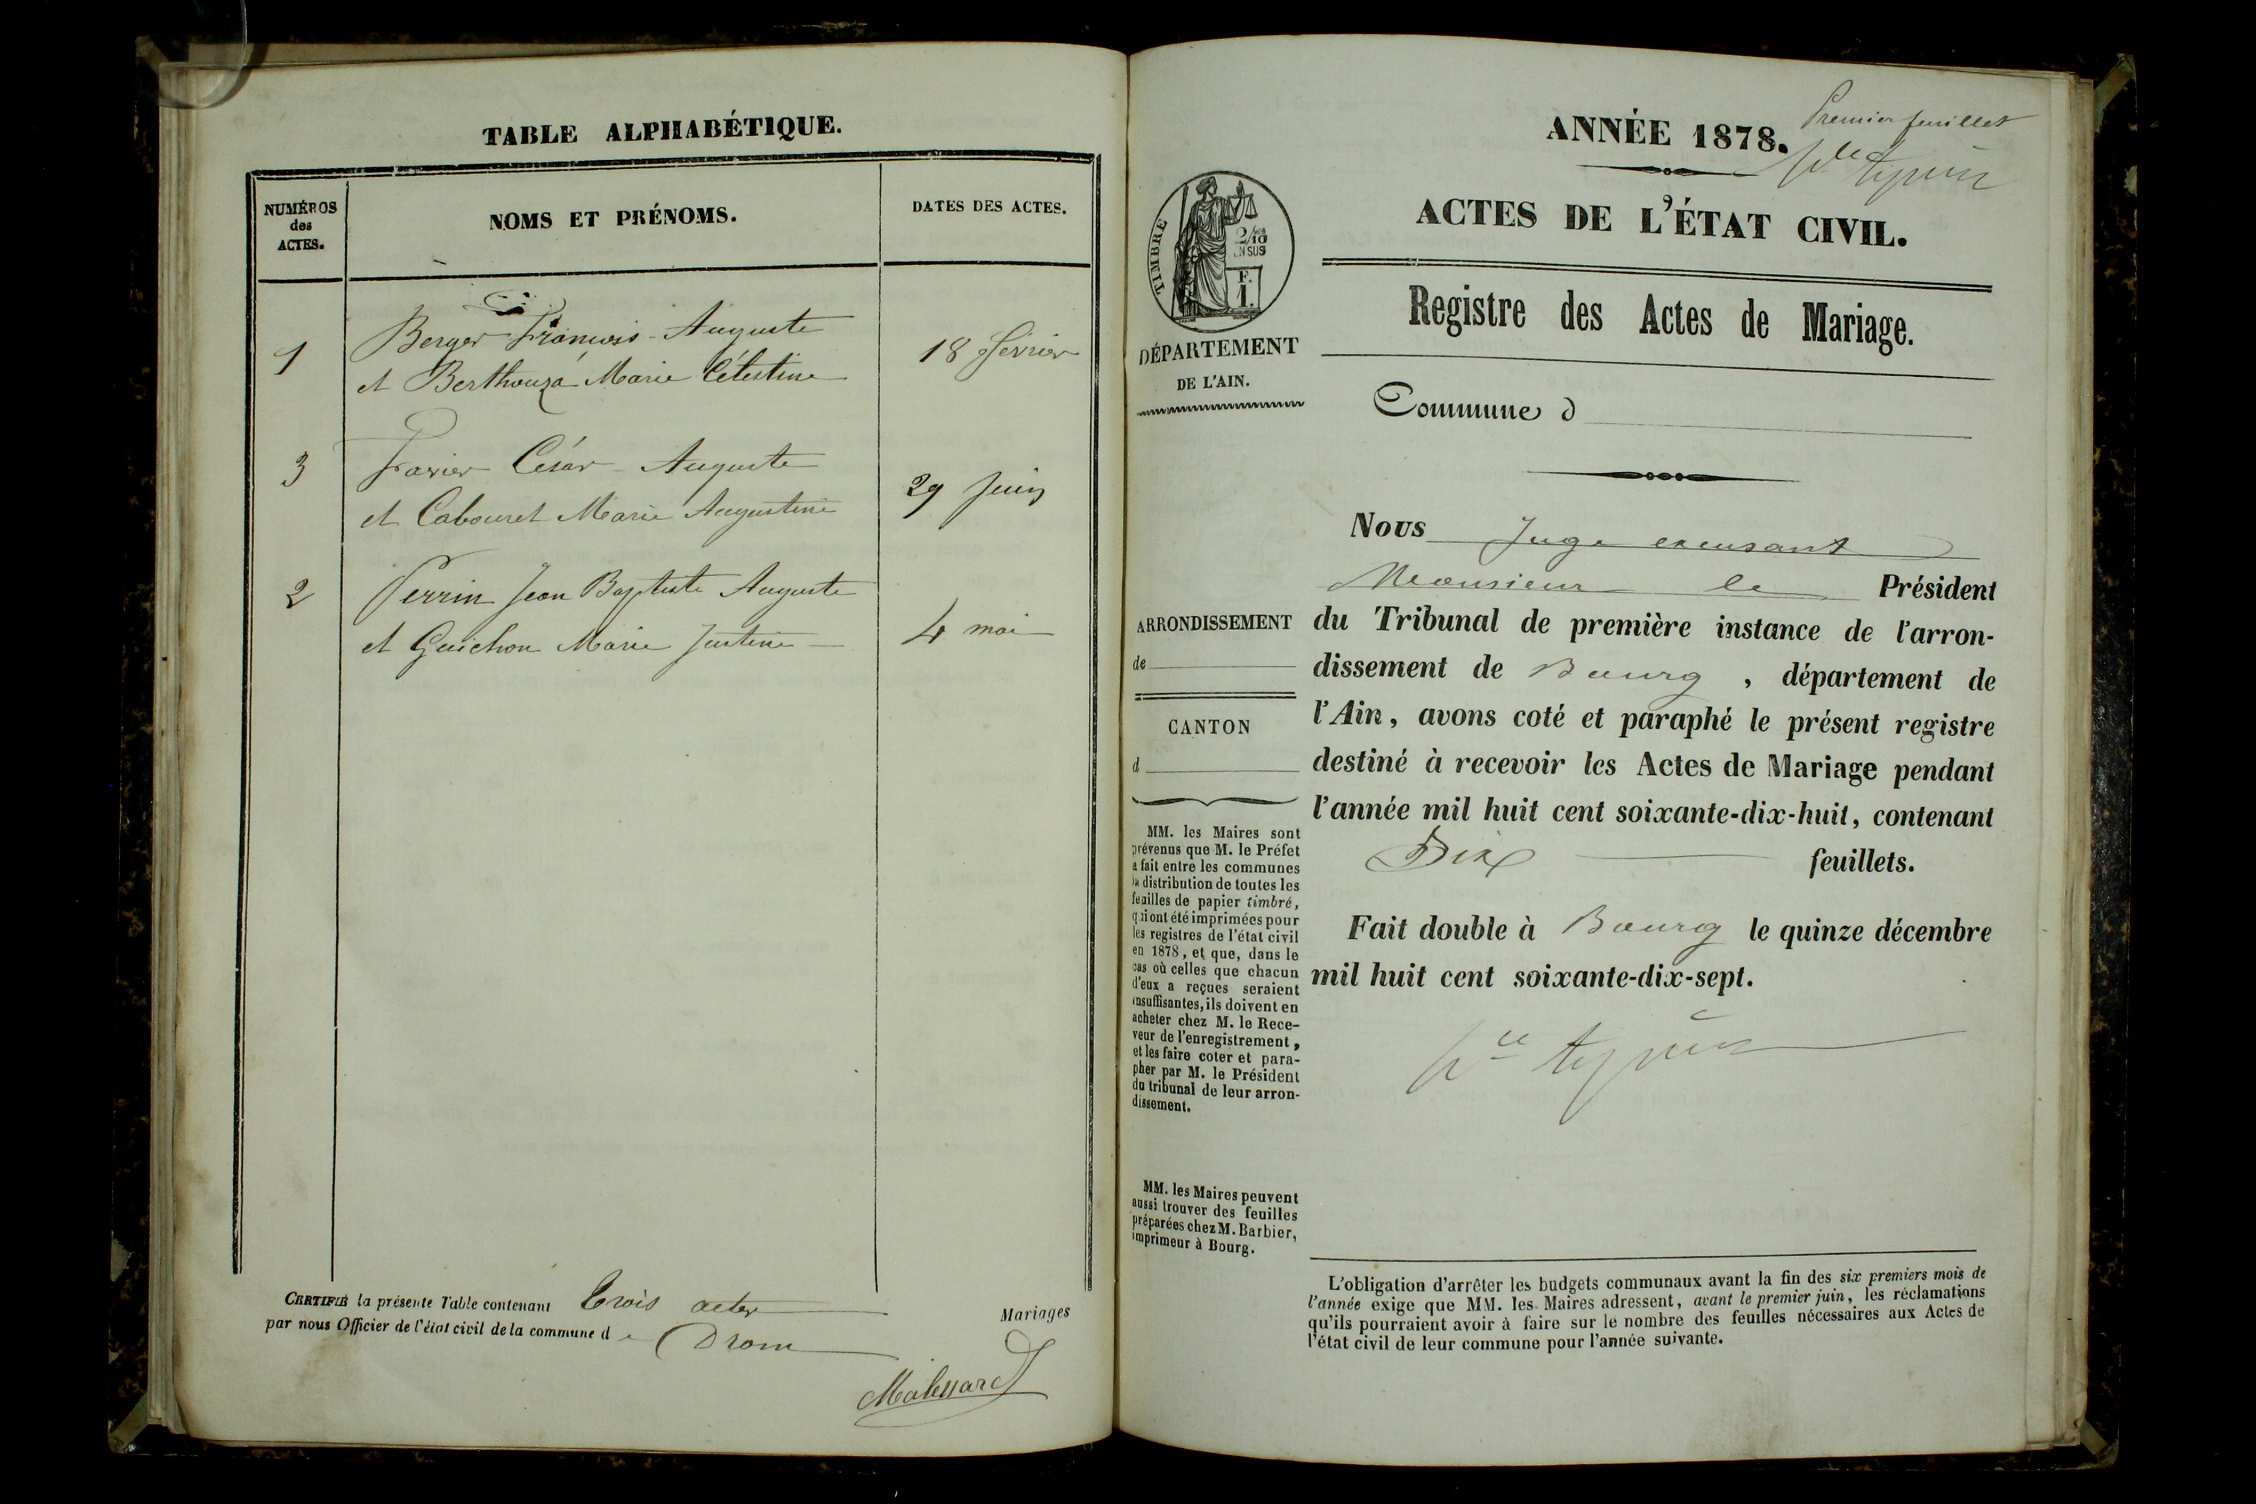 TABLE ALPHABÉTIQUE.
NUMÉROS
des
ACTES.
NOMS ET PRÉNOMS.
DATES DES ACTES.
1
Berger François-Auguste
et Berthouza Marie Célestine
18 février
3
Favier César-Auguste
et Cabouret Marie Augustine
29 juin
2
Perrin Jean Baptiste Auguste
et Guichon Marie Justine
4 mai
CERTIFIÉ la présente Table contenant trois actes
Mariages
par nous Officier de l'état civil de la commune de Drom
ANNÉE 1878.
Premier feuillet
ACTES DE L'ÉTAT CIVIL.
TIMBRE
2/10
EN SUS
F.
1.
Registre des Actes de Mariage.
DÉPARTEMENT
DE L'AIN.
Commune d
Nous Juge
Monsieur le Président
du Tribunal de première instance de l'arron-
dissement de Bourg, département de
l'Ain, avons coté et paraphé le présent registre
destiné à recevoir les Actes de Mariage pendant
l'année mil huit cent soixante-dix-huit, contenant
Dix feuillets.
Fait double à Bourg le quinze décembre
mil huit cent soixante-dix-sept.
ARRONDISSEMENT
de
CANTON
d
MM. les Maires sont
prévenus que M. le Préfet
a fait entre les communes
la distribution de toutes les
feuilles de papier timbré,
qui ont été imprimées pour
les registres de l'état civil
en 1878, et que, dans le
cas où celles que chacun
d'eux a reçues seraient
insuffisantes, ils doivent en
acheter chez M. le Rece-
veur de l'enregistrement,
et les faire coter et para-
pher par M. le Président
du tribunal de leur arron-
dissement.
MM. les Maires peuvent
aussi trouver des feuilles
préparées chez M. Barbier,
imprimeur à Bourg.
L'obligation d'arrêter les budgets communaux avant la fin des six premiers mois de
l'année exige que MM. les Maires adressent, avant le premier juin, les réclamations
qu'ils pourraient avoir à faire sur le nombre des feuilles nécessaires aux Actes de
l'état civil de leur commune pour l'année suivante.